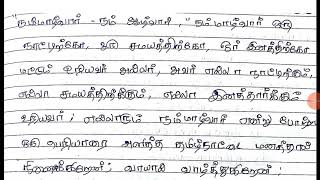 "நம்மாழ்வார் - நம் ஆழ்வார், "நம்மாழ்வார் ஒரு
நாட்டிற்கோ, ஒரு சமயத்திற்கோ, ஓர் இனத்திற்கோ
மட்டும் உரியவர் அல்லர், அவர் எல்லா நாட்டிற்கும்,
எல்லா சமயத்திற்கும், எல்லா இனத்தார்க்கும்
உரியவர்; எல்லாரும் நம்மாழ்வார் என்று போற்றும்
ஒரு பெரியாரை அளித்த தமிழ்நாட்டை மனத்தால்
நினைக்கிறேன்; வாயால் வாழ்த்துகிறேன்;